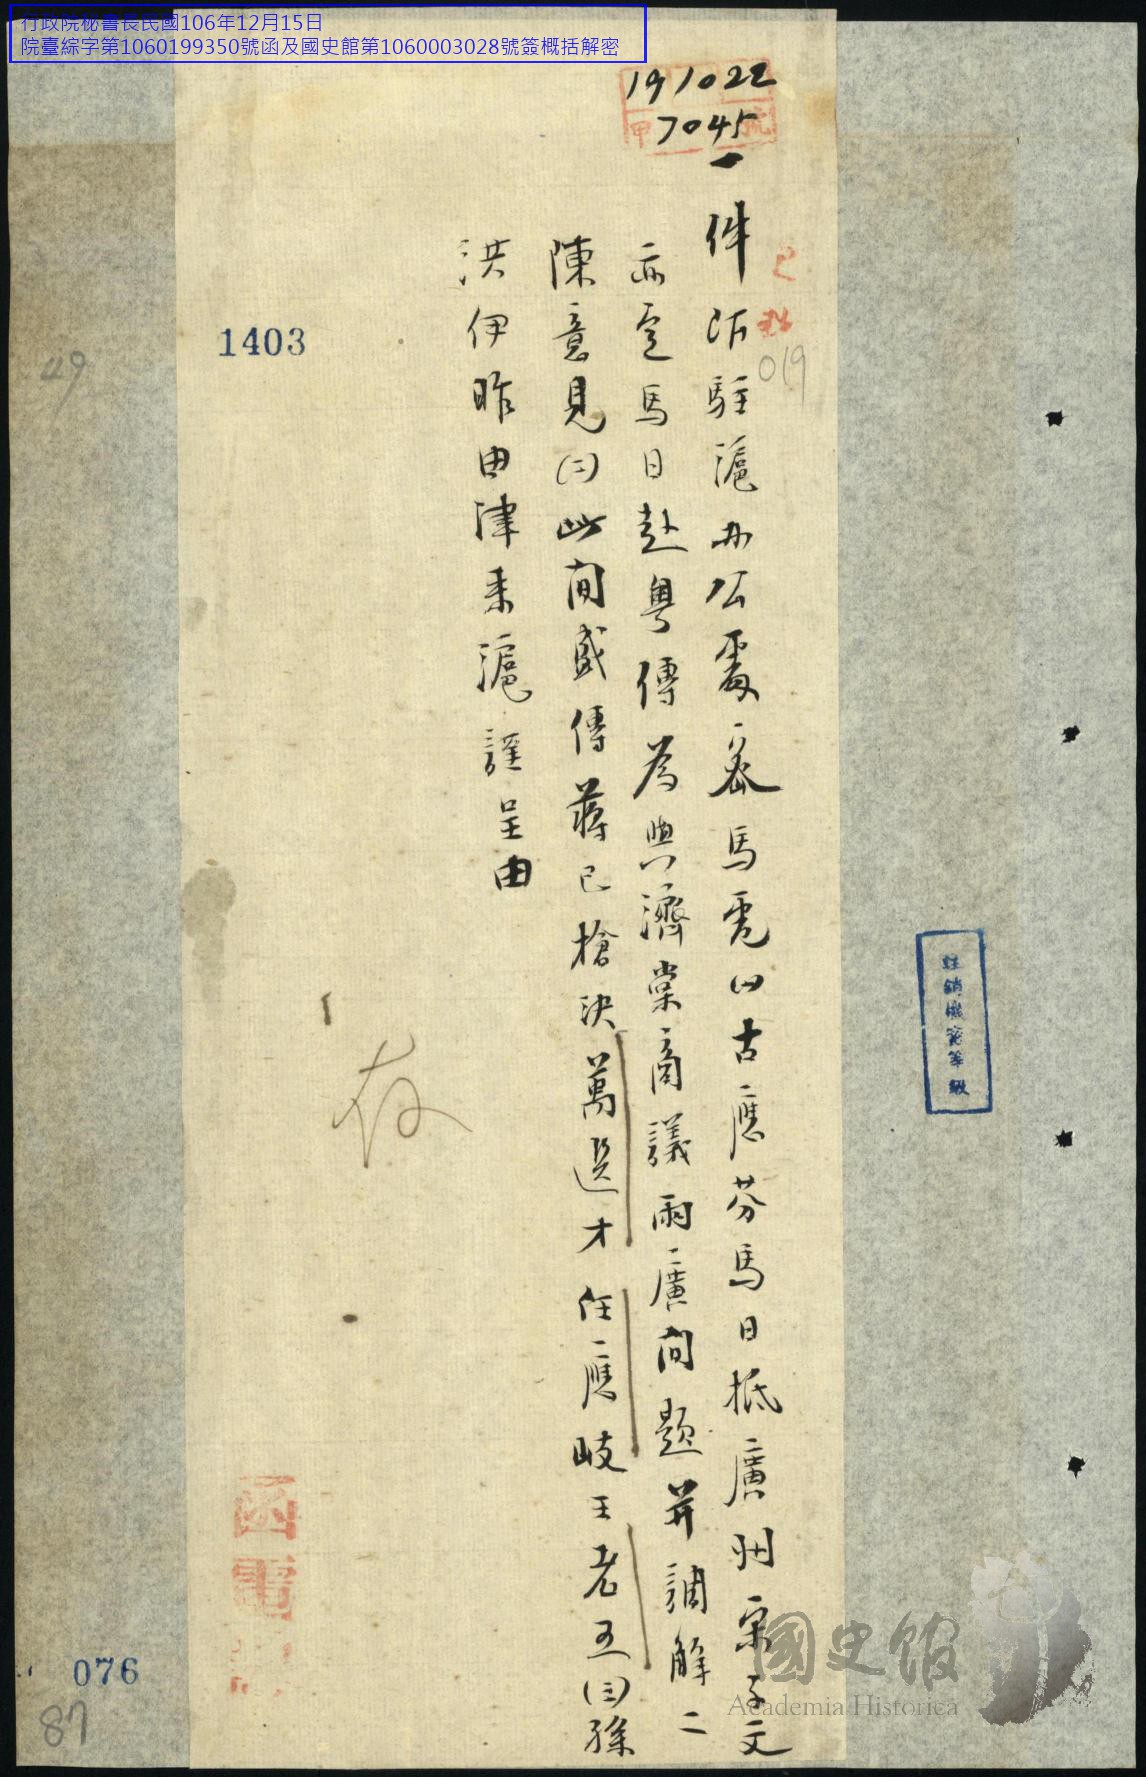 行政院秘書長民國106年12月15日
院臺綜字第1060199350號函及國史館第1060003028號簽概括解密
191022
7045
甲 號
已
019
一件 駐滬办公處密馬電㈠古應芬馬日抵廣州宋子文
亦定馬日赴粵傳為與濟棠商議兩廣問題并調解二
陳意見㈡此間盛傳蔣已槍決萬選才任應岐王老五㈢孫
洪伊昨由津來滬謹呈由
1403
49
存
註銷機密等級
函電
076
87
國史館
Academia Historica